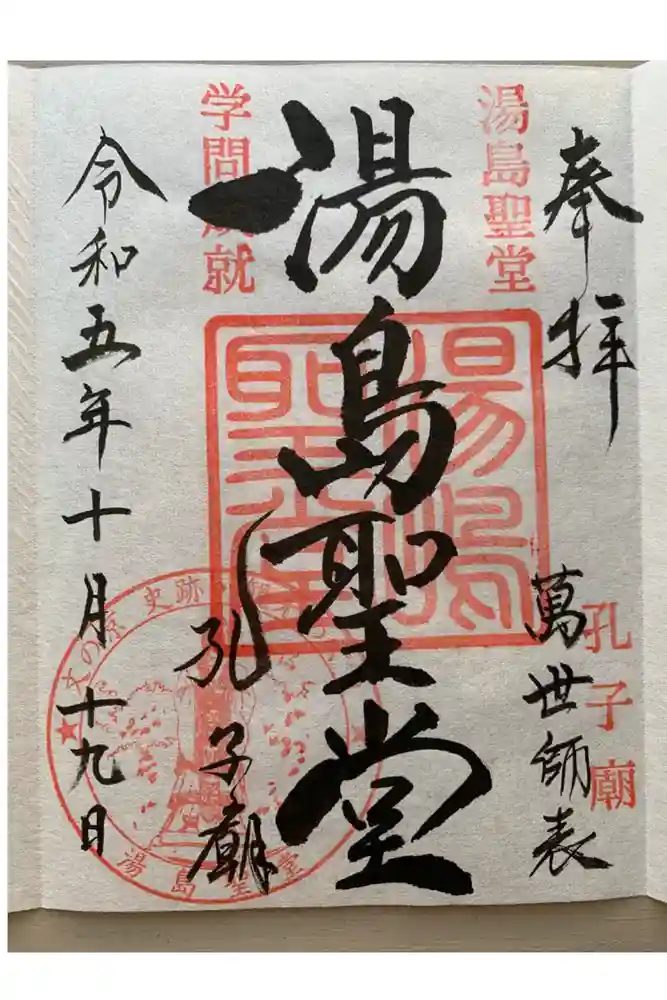 奉拝
湯島聖堂
萬世師表
孔子廟
湯島聖堂
湯島聖堂
孔子廟
学問成就
令和五年十月十九日
史跡
湯島聖堂